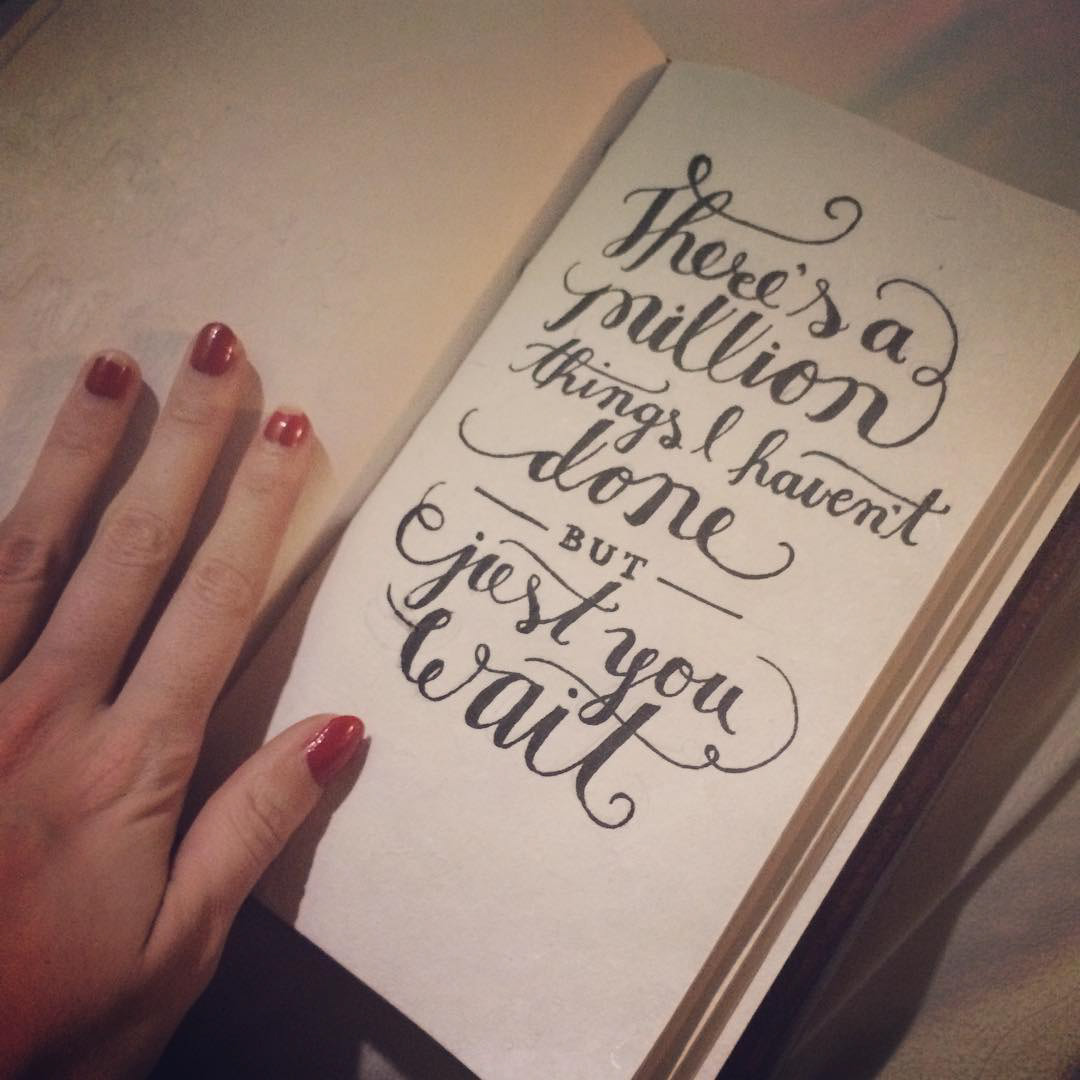 There's a
million
things I haven't
done
BUT
just you
wait